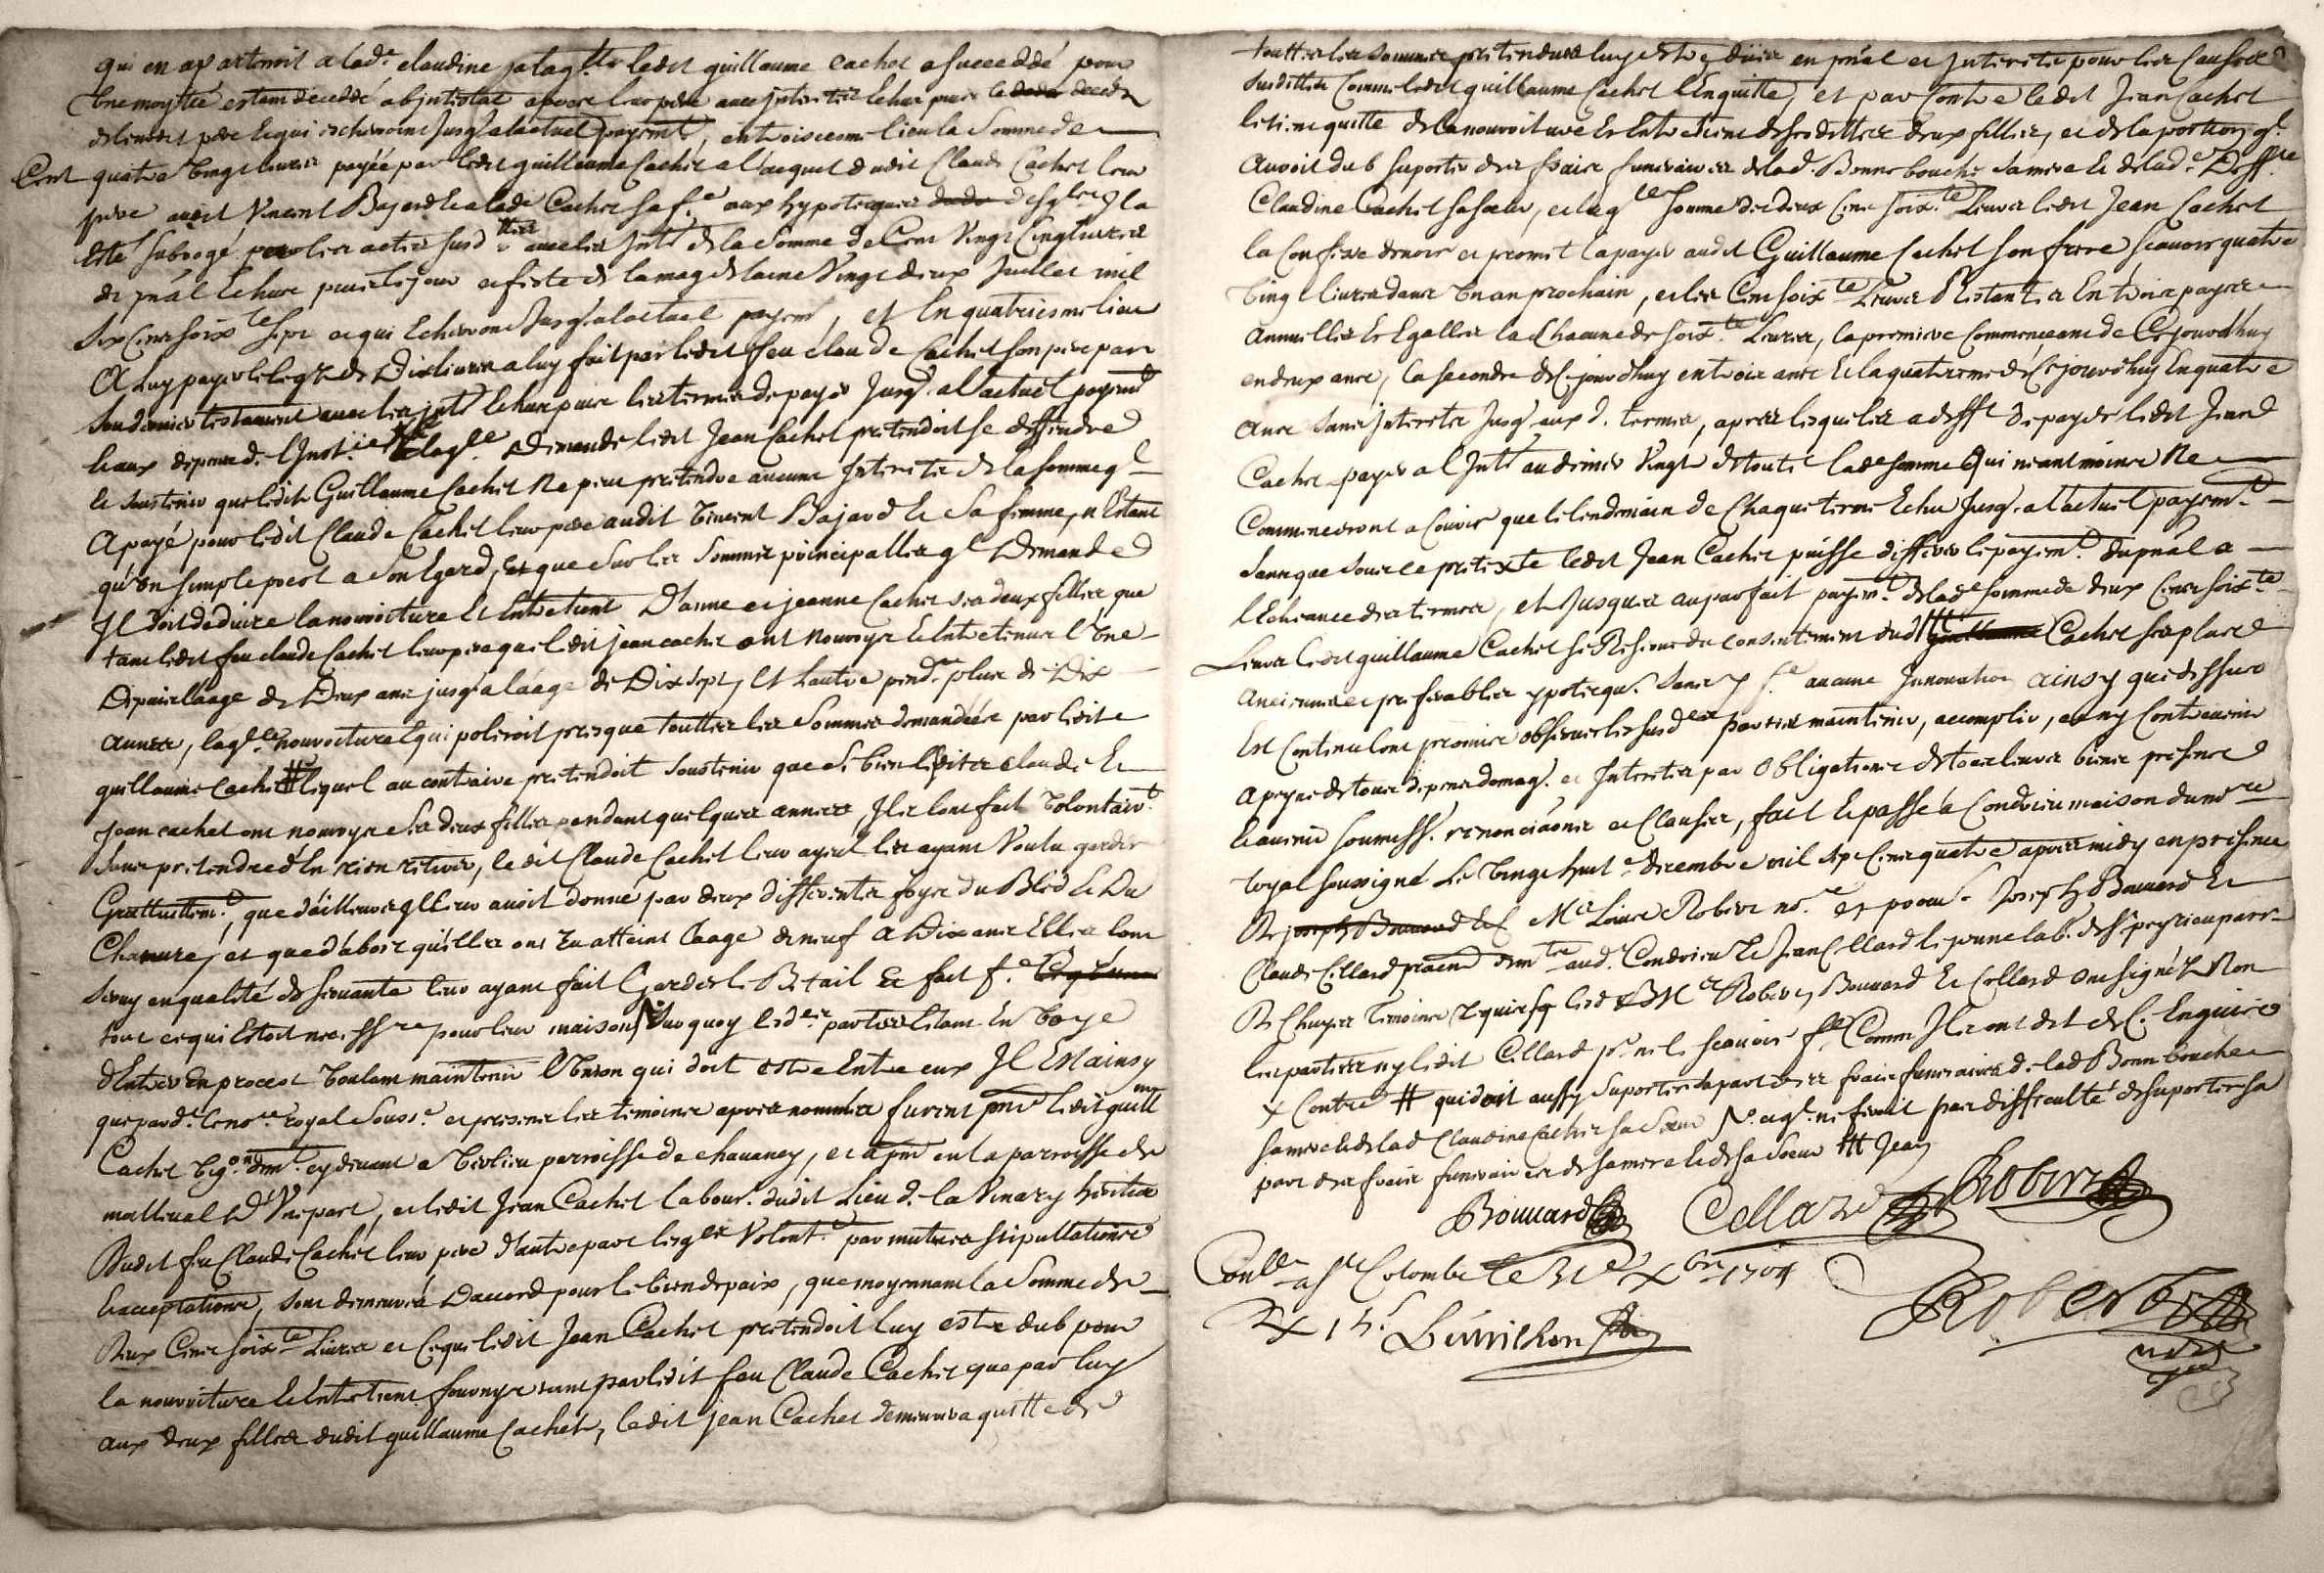 qui en apartenoit a lad.e claudine a laq.lle ledit guillaume cachet a succeddé pour
une moytié estant deceddé abjntestat apres leur pere avec jnterets echus puis le deces
dudit pere et qui escherront jusq. a l'actuel payemt, en troisiesme lieu la somme de
Cent quatre vingt livres payée par ledit guillaume Cachet a l'acquet dudit Claude Cachet leur
pere audit Vincent Bajard et a lad.e Cachet sa f.e aux hypoteques desq.les Jl a
esté subrogé par les actes susd. avec les jnts de la somme de Cent Vingt Cinq livres
de pnâl Echus puis le jour et feste de la magdelaine Vingt deux Juillet mil
six Cents soix.te sept et qui Echerront jusq. a l'actuel payemt, et En quatriesme lieu
A luy payer le legt de Dix livres a luy fait par ledit feu claude Cachet son pere par
son dernier testament avec les jnts Echus puis les termes de payer jusq. al'actuel payemt
et aux depens d. l'Inst.ce A laq.le Demande ledit Jean Cachet pretendoit se deffendre
et soustenir que ledit Guillaume Cachet ne peut pretendre aucuns Jnterets de la somme q.l
A payé pour ledit Claude Cachet leur pere audit Vincent Bajard et sa femme, n'Estant
qu'un simple prest a son Egard, et que sur les sommes principalles q.l Demande
Jl doit deduire la nourriture et Entretient D'anne et jeanne Cachet ses deux filles, que
tant ledit feu claude Cachet leur pere que ledit jean cachet ont nourrye et Entretenue l'une
Depuis l'aage de Deux ans jusq. a l'aage de Dix sept, et L'autre pend.t plus de Dix
années, laq.le nourriture Esquipoleroit presque touttes les sommes demandées par ledit
guillaume Cachet # lequel au contraire pretendoit soustenir que si bien lesdits claude et
Jean cachet ont nourrye ses deux filles pendant quelques années, Jls l'ont fait volontairt
sans pretendre d'En rien retirer, ledit Claude Cachet leur ayeul les ayant Voulu garder
Gratuittemt, que d'ailleurs Jl leur avoit donné par deux differentes foys du Bled et Du
Chanvre, et que d'abort qu'elles ont Eu atteint l'aage de neuf a Dix ans Elles l'ont
servy en qualité de servante leur ayant fait Garder le Betail et fait f.e
tout ce qui Estoit necess.re pour leur maison, N Sur quoy lesd.es parties Estant En voye
d'Entrer En proces Voulant maintenir l'Vnion qui doit estre Entre eux Jl Est ainsy
que pard.t le no.re royal Souss.é et presents les temoins apres nommés furent pnts ledit guill.me
Cachet vig.on dem.t cy devant a Verlieu parroisse de chavanay, et apnt en la parroisse de
malleval d'Vne part, et ledit Jean Cachet labour.r dudit Lieu d. la Vinary heritier
Dudit feu Claude Cachet leur pere d'autre part lesq.les Volont.t par mutues stipullations
et acceptations, sont demeurés D'accord pour le bien de paix, que moyennant la somme de
Deux Cents soix.te Livres et Ce que ledit Jean Cachet pretendoit luy estre dub pour
la nourriture et Entretient fournys tant par ledit feu Claude Cachet que par luy
aux deux filles dudit guillaume Cachet, ledit jean Cachet demeurera quitte de
touttes les sommes pretendues luy estre dues en pnâl et jnterets pour les Causes
susdittes Comme ledit guillaume Cachet l'En quitte, et par Contre ledit Jean Cachet
le tient quitte de la nourriture et Entretient de sesdittes deux filles, et de la portion q.l
avoit dub suporter des frais funeraires de lad. Bonnebouche sa mere et de lad.e Deff.te
Claudine Cachet sa sœur, et laq.le somme de deux Cens soix.te Livres ledit Jean Cachet
la Confesse devoir et promet la payer audit Guillaume Cachet son frere scavoir quatre
vingt livres dans Vn an prochain, et les Cent soix.te Livres Restantes En trois payes
annuelles et Egalles la Chacune de soix.te Livres, la premiere Commenceant de Cejourd'huy
en deux ans, la seconde de Cejourd'huy en trois ans et la quatriesme de Cejourd'huy En quatre
ans sans jnterets jusq. aux d. termes, apres lesquels a deff.t de payer ledit Jean
Cachet payera l'Jntt au denier Vingt de toutte lad.e somme qui neantmoins Ne
Commenceront a Courir que le lendemain de Chaque terme Echu jusq. a l'actuel payemt
sans que sous ce pretexte ledit Jean Cachet puisse differer le payemt du pnâl a
l'Echeance des termes, et jusques au parfait payemt de lad.e somme de deux Cens soix.te
Livres ledit guillaume Cachet se Reserve du consentement dud. ## Cachet ses plus
anciennes et preferables ypoteques sans y f.e aucune Jnnovation ainsy que dessus
Est Contenu l'ont promis observer lesd.es parties maintenir, accomplir, et n'y Contrevenir
a peyne de tous depens domag. et Jnterets par obligations de tous leurs biens presents
et avenir soumiss. renonciaons et Clauses, fait et passé a Condrieu maison du no.re
royal soussigné Le Vingt huit.e decembre mil sept Cens quatre apres midy en presence
De M.e Louis Robert no.re et procur. Joseph Bouvard et
Claude Cillard dem.t aud. Condrieu et Jean Cellard le jeune lab.r de St peyrieu parr.
De Chuyes temoins requis lesd. M.e Robert, Bouvard et Cellard ont signé et Non
les parties ny ledit Cillard p.r ne le scavoir f.e Comm Jls ont dit de Ce Enquis
x Contre # qui doit aussy suporter sa part des frais funeraires de lad Bonnebouche
sa mere et de lad Claudine Cachet sa sœur N. et q.l ne feroit pas difficulté de suporter sa
part des frais funeraires de sa mere et de sa sœur ## Jean
Bouvard Cellard Robert
Conllé a Ste Colombe le 31e Xbre 1704
Rx 15 s.
Robert
no.re